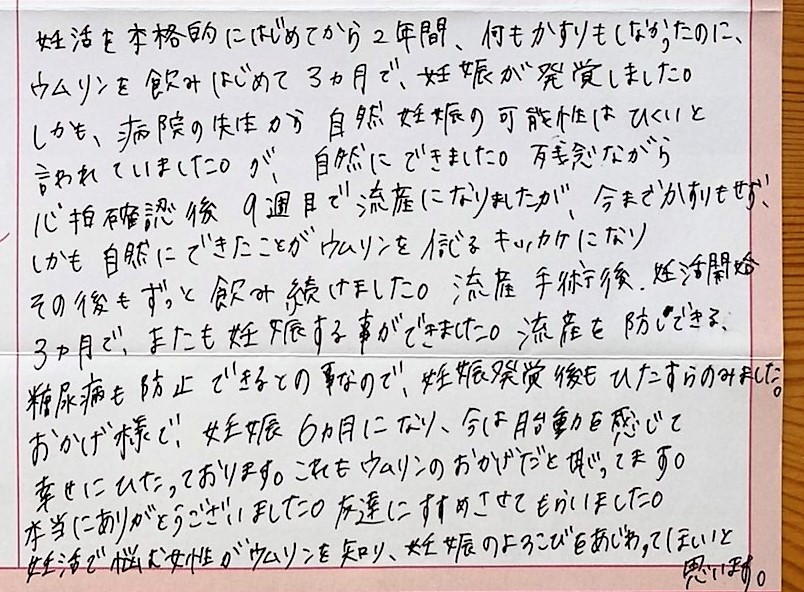 妊活を本格的にはじめてから2年間、何もかすりもしなかったのに、
ウムリンを飲みはじめて3ヵ月で、妊娠が発覚しました。
しかも、病院の先生から自然妊娠の可能性はひくいと
言われていました。が、自然にできました。残念ながら
心拍確認後9週目で流産になりましたが、今までかすりもせず、
しかも自然にできたことがウムリンを信じるキッカケになり
その後もずっと飲み続けました。流産手術後、妊活開始
3ヵ月で、またも妊娠する事ができました。流産を防止できる、
糖尿病も防止できるとの事なので、妊娠発覚後もひたすらのみました。
おかげ様で、妊娠6ヵ月になり、今は胎動を感じて
幸せにひたっております。これもウムリンのおかげだと思ってます。
本当にありがとうございました。友達にすすめさせてもらいました。
妊活で悩む女性がウムリンを知り、妊娠のよろこびをあじわってほしいと
思います。